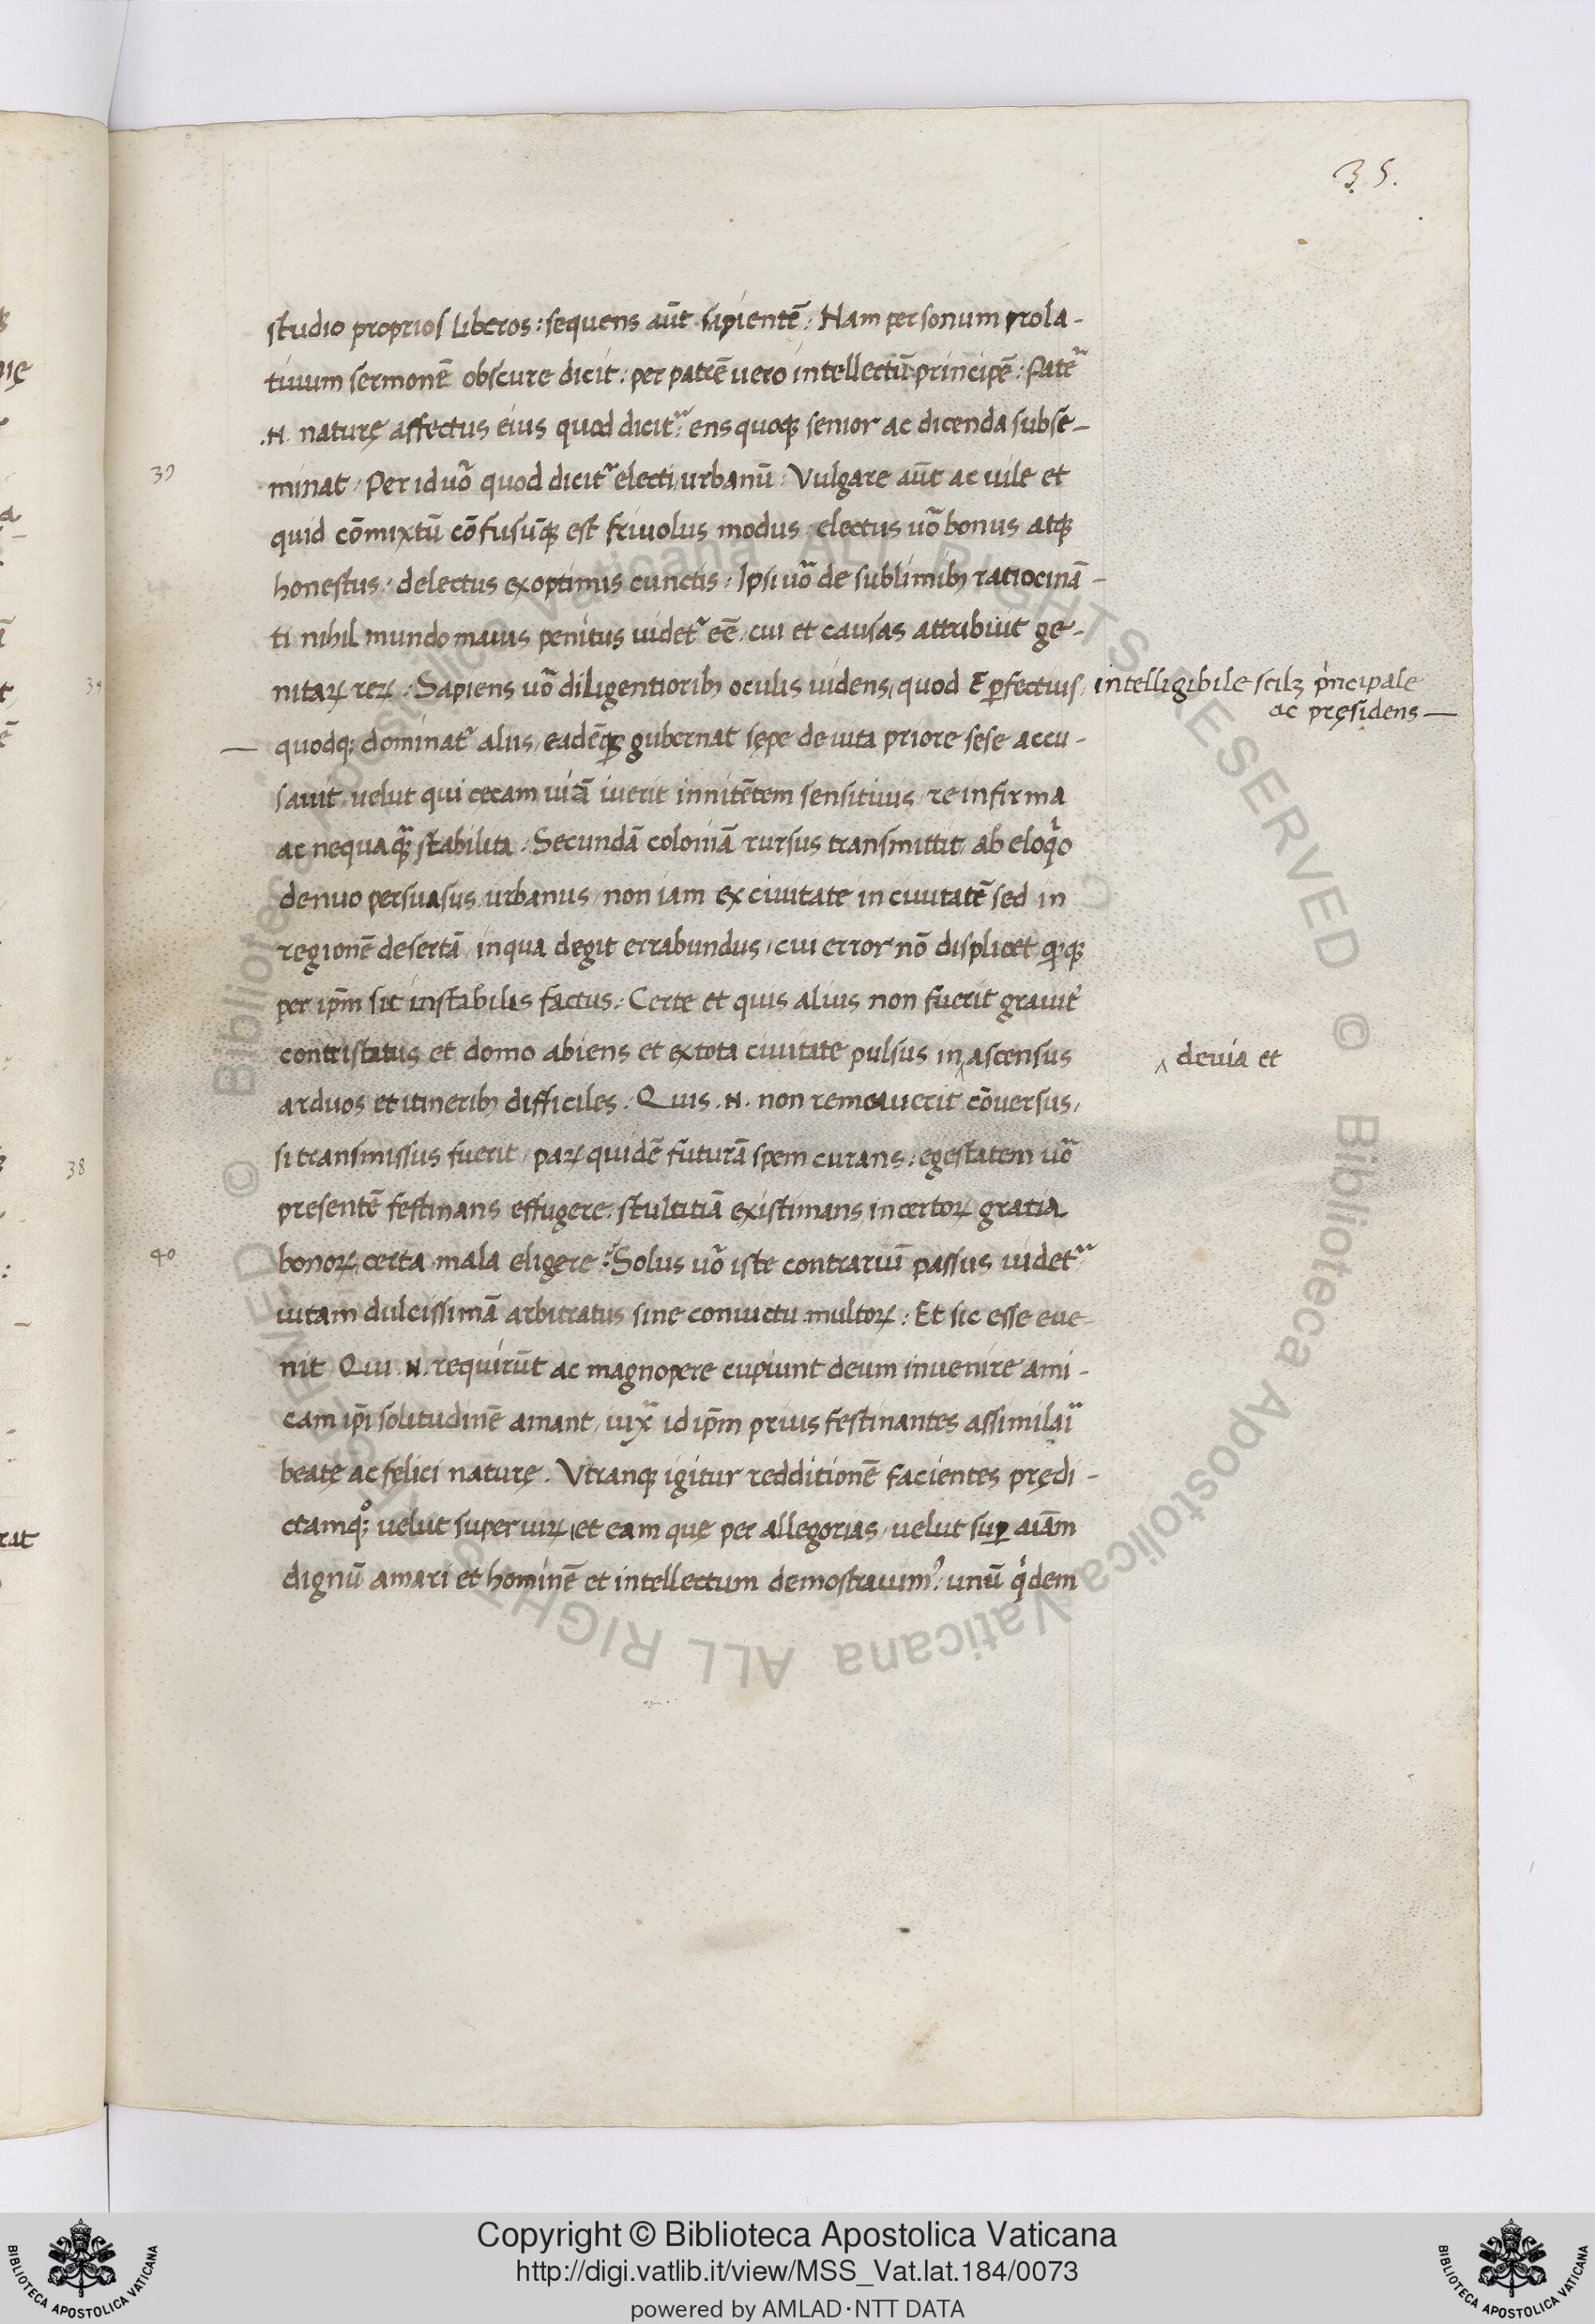 35.
studio proprios liberos: sequens aūt sapientē: Nam per sonum prola-
tiuum sermonē obscure dicit: per patrē uero intellectū principē: Patē
.N. naturę affectus eius quod dicit: ens quoq senior ac dicenda subse-
39
minat. Per id uō quod dicit electi urbanū. Vulgare aūt ac uile et
quid cōmixtū cōfusūq est friuolus modus. electus uō bonus atq
honestus: delectus ex optimis cunctis: Ipsi uō de sublimib ratiocinā-
ti nihil mundo maius penitus uidet eē, cui et causas attribuit ge-
nitaꝝ reꝝ: Sapiens uō diligentiorib oculis uidens, quod E ꝑfectius,
intelligibile scilꝫ pricipale
ac pręsidens —
— quodq; dominat aliis, eadēq gubernat sępe de uita priore sese accu-
sauit. uelut qui cecam uiā iuerit innitētem sensitiuis, re infirma
ac nequaq stabilita. Secundā coloniā rursus transmittit, ab eloqio
denuo persuasus urbanus, non iam ex ciuitate in ciuitatē sed in
regionē desertā, in qua degit errabundus, cui error nō displicet
per ipm sit instabilis factus. Certe et quis alius non fuerit grauit
contristatus et domo abiens et ex tota ciuitate pulsus in ascensus
deuia et
arduos et itinerib difficiles. Quis .N. non remeauerit cōuersus,
si transmissus fuerit, paꝝ quidē futurā spem curans: egestatem uō
presentē festinans effugere: stultitiā existimans, incertoꝝ gratia
40
bonoꝝ, certa mala eligere: Solus uō iste contrariū passus uidet
uitam dulcissimā arbitratus sine conuictu multoꝝ: Et sic esse eue-
nit Qui .N. requirūt ac magnopere cupiunt deum inuenire ami-
cam ipi solitudinē amant, iux id ipm prius festinantes assimilai
beatę ac fęlici naturę. Vtranq igitur redditionē facientes prędi-
ctamq; uelut super uiꝝ, et eam quę per allegorias, uelut suꝑ aiam
dignū amari et hominē et intellectum demostrauim: unū qdem
38
Copyright © Biblioteca Apostolica Vaticana
http://digi.vatlib.it/view/MSS_Vat.lat.184/0073
powered by AMLAD·NTT DATA